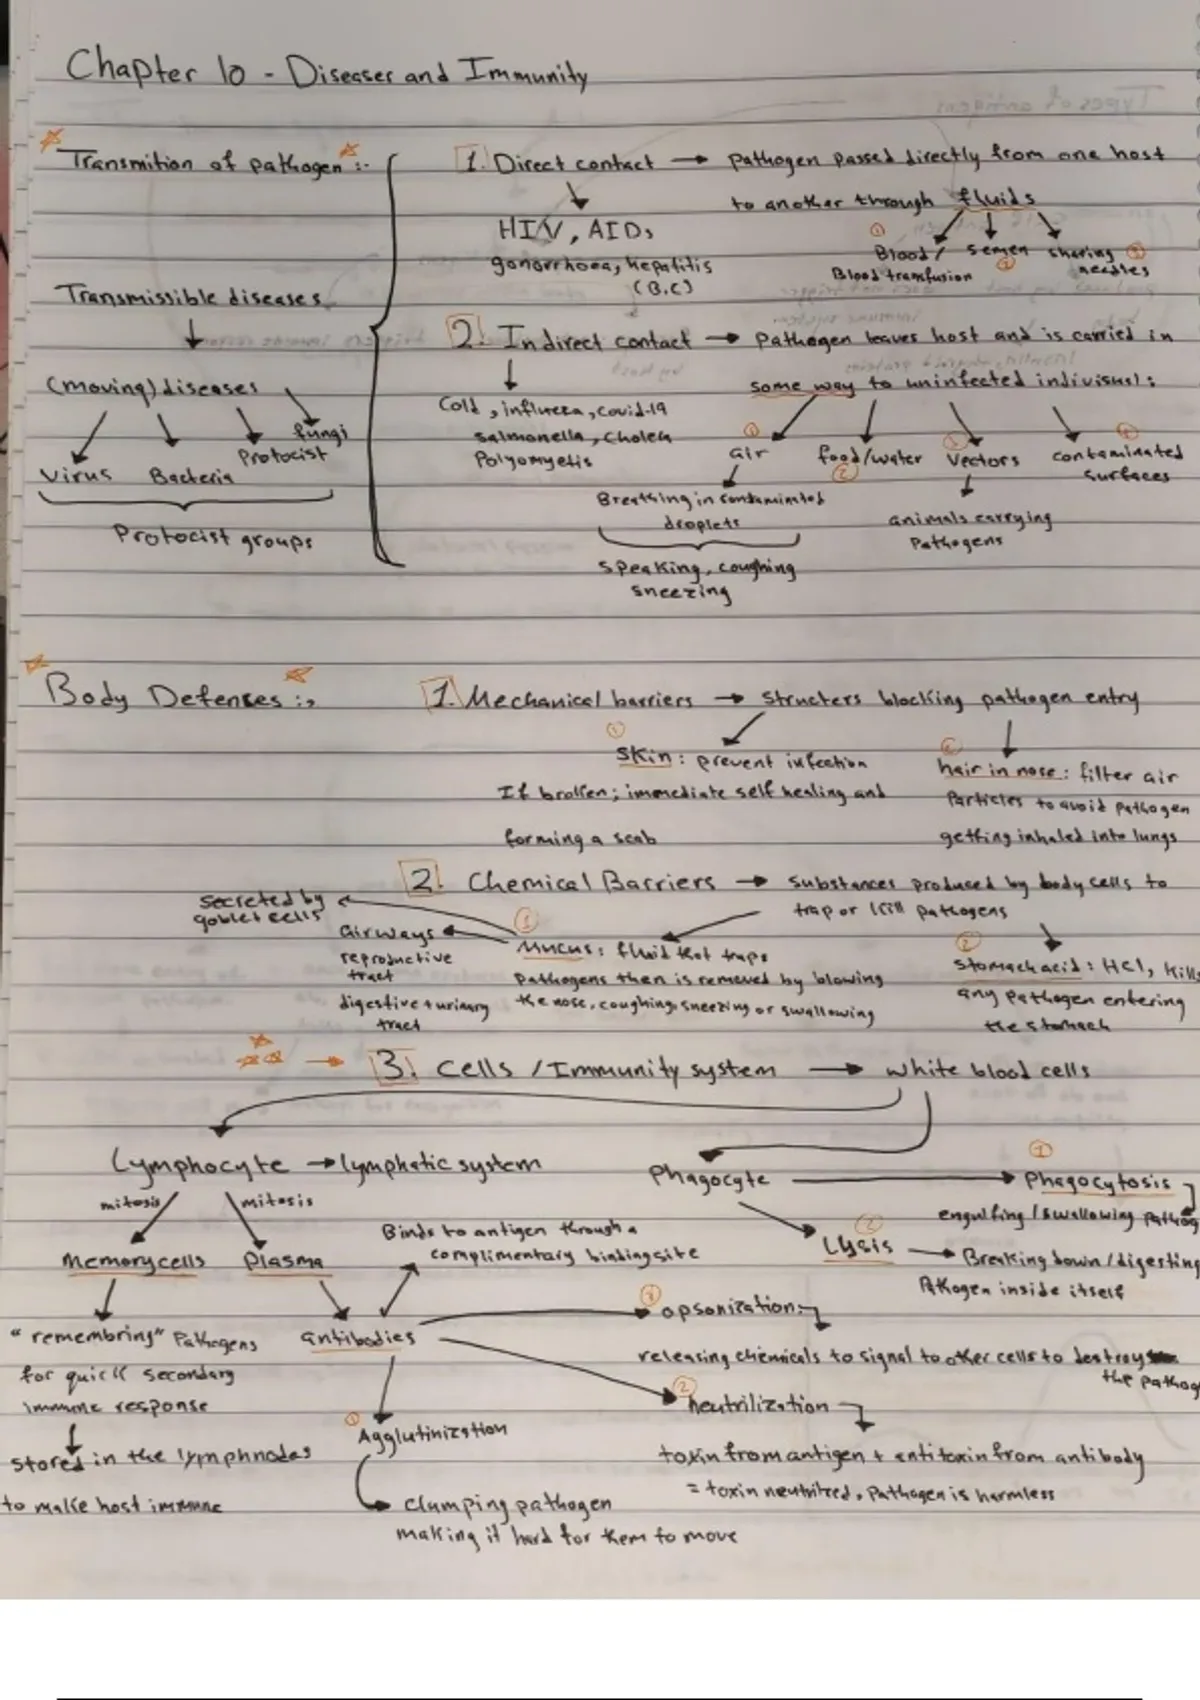 Chapter 10 - Diseases and Immunity
Transmition of pathogen :-
1. Direct contact → pathogen passed directly from one host
to another through fluids
HIV, AIDs
gonorrhoea, hepatitis
(B.C)
① Blood/
Blood transfusion
semen ②
sharing ③
needles
Transmissible diseases
(moving) diseases
virus
Bacteria
Protocist
fungi
Protocist groups
2. Indirect contact → pathogen leaves host and is carried in
some way to uninfected indivisusl :
Cold, influeza, covid-19
salmonella, Cholera
Polyomyetis
① air
food/water ②
③ Vectors
④ contaminated
surfaces
Breathing in contaminated
droplets
speaking, coughing
sneezing
animals carrying
Pathogens
Body Defenses :,
1. Mechanical barriers → structers blocking pathogen entry
① skin : prevent infection
If broken; immediate self healing and
forming a scab
② hair in nose : filter air
Particles to avoid pathogen
getting inhaled into lungs
2. Chemical Barriers → substances produced by body cells to
trap or kill pathogens
secreted by
goblet cells
airways
reproductive
tract
digestive + urinary
tract
① Mucus : fluid that traps
pathogens then is removed by blowing
the nose, coughing, sneezing or swallowing
② stomach acid : HCl, kills
any pathogen entering
the stomach
→ 3. cells / Immunity system → white blood cells
Lymphocyte → lymphatic system
mitosis
mitosis
Memory cells
Plasma
"remembring" Pathogens
for quick secondary
immune response
stored in the lymphnodes
to make host immune
antibodies
Binds to antigen through a
complimentary binding site
Phagocyte
① Phagocytosis
engulfing / swallowing pathog
② Lysis → Breaking down / digesting
Pathogen inside itself
③ opsonization :
releasing chemicals to signal to other cells to destroy
the pathog
② neutrilization
toxin from antigen + antitoxin from antibody
= toxin neutrilized, Pathogen is harmless
① Agglutinization
clumping pathogen
making it hard for them to move